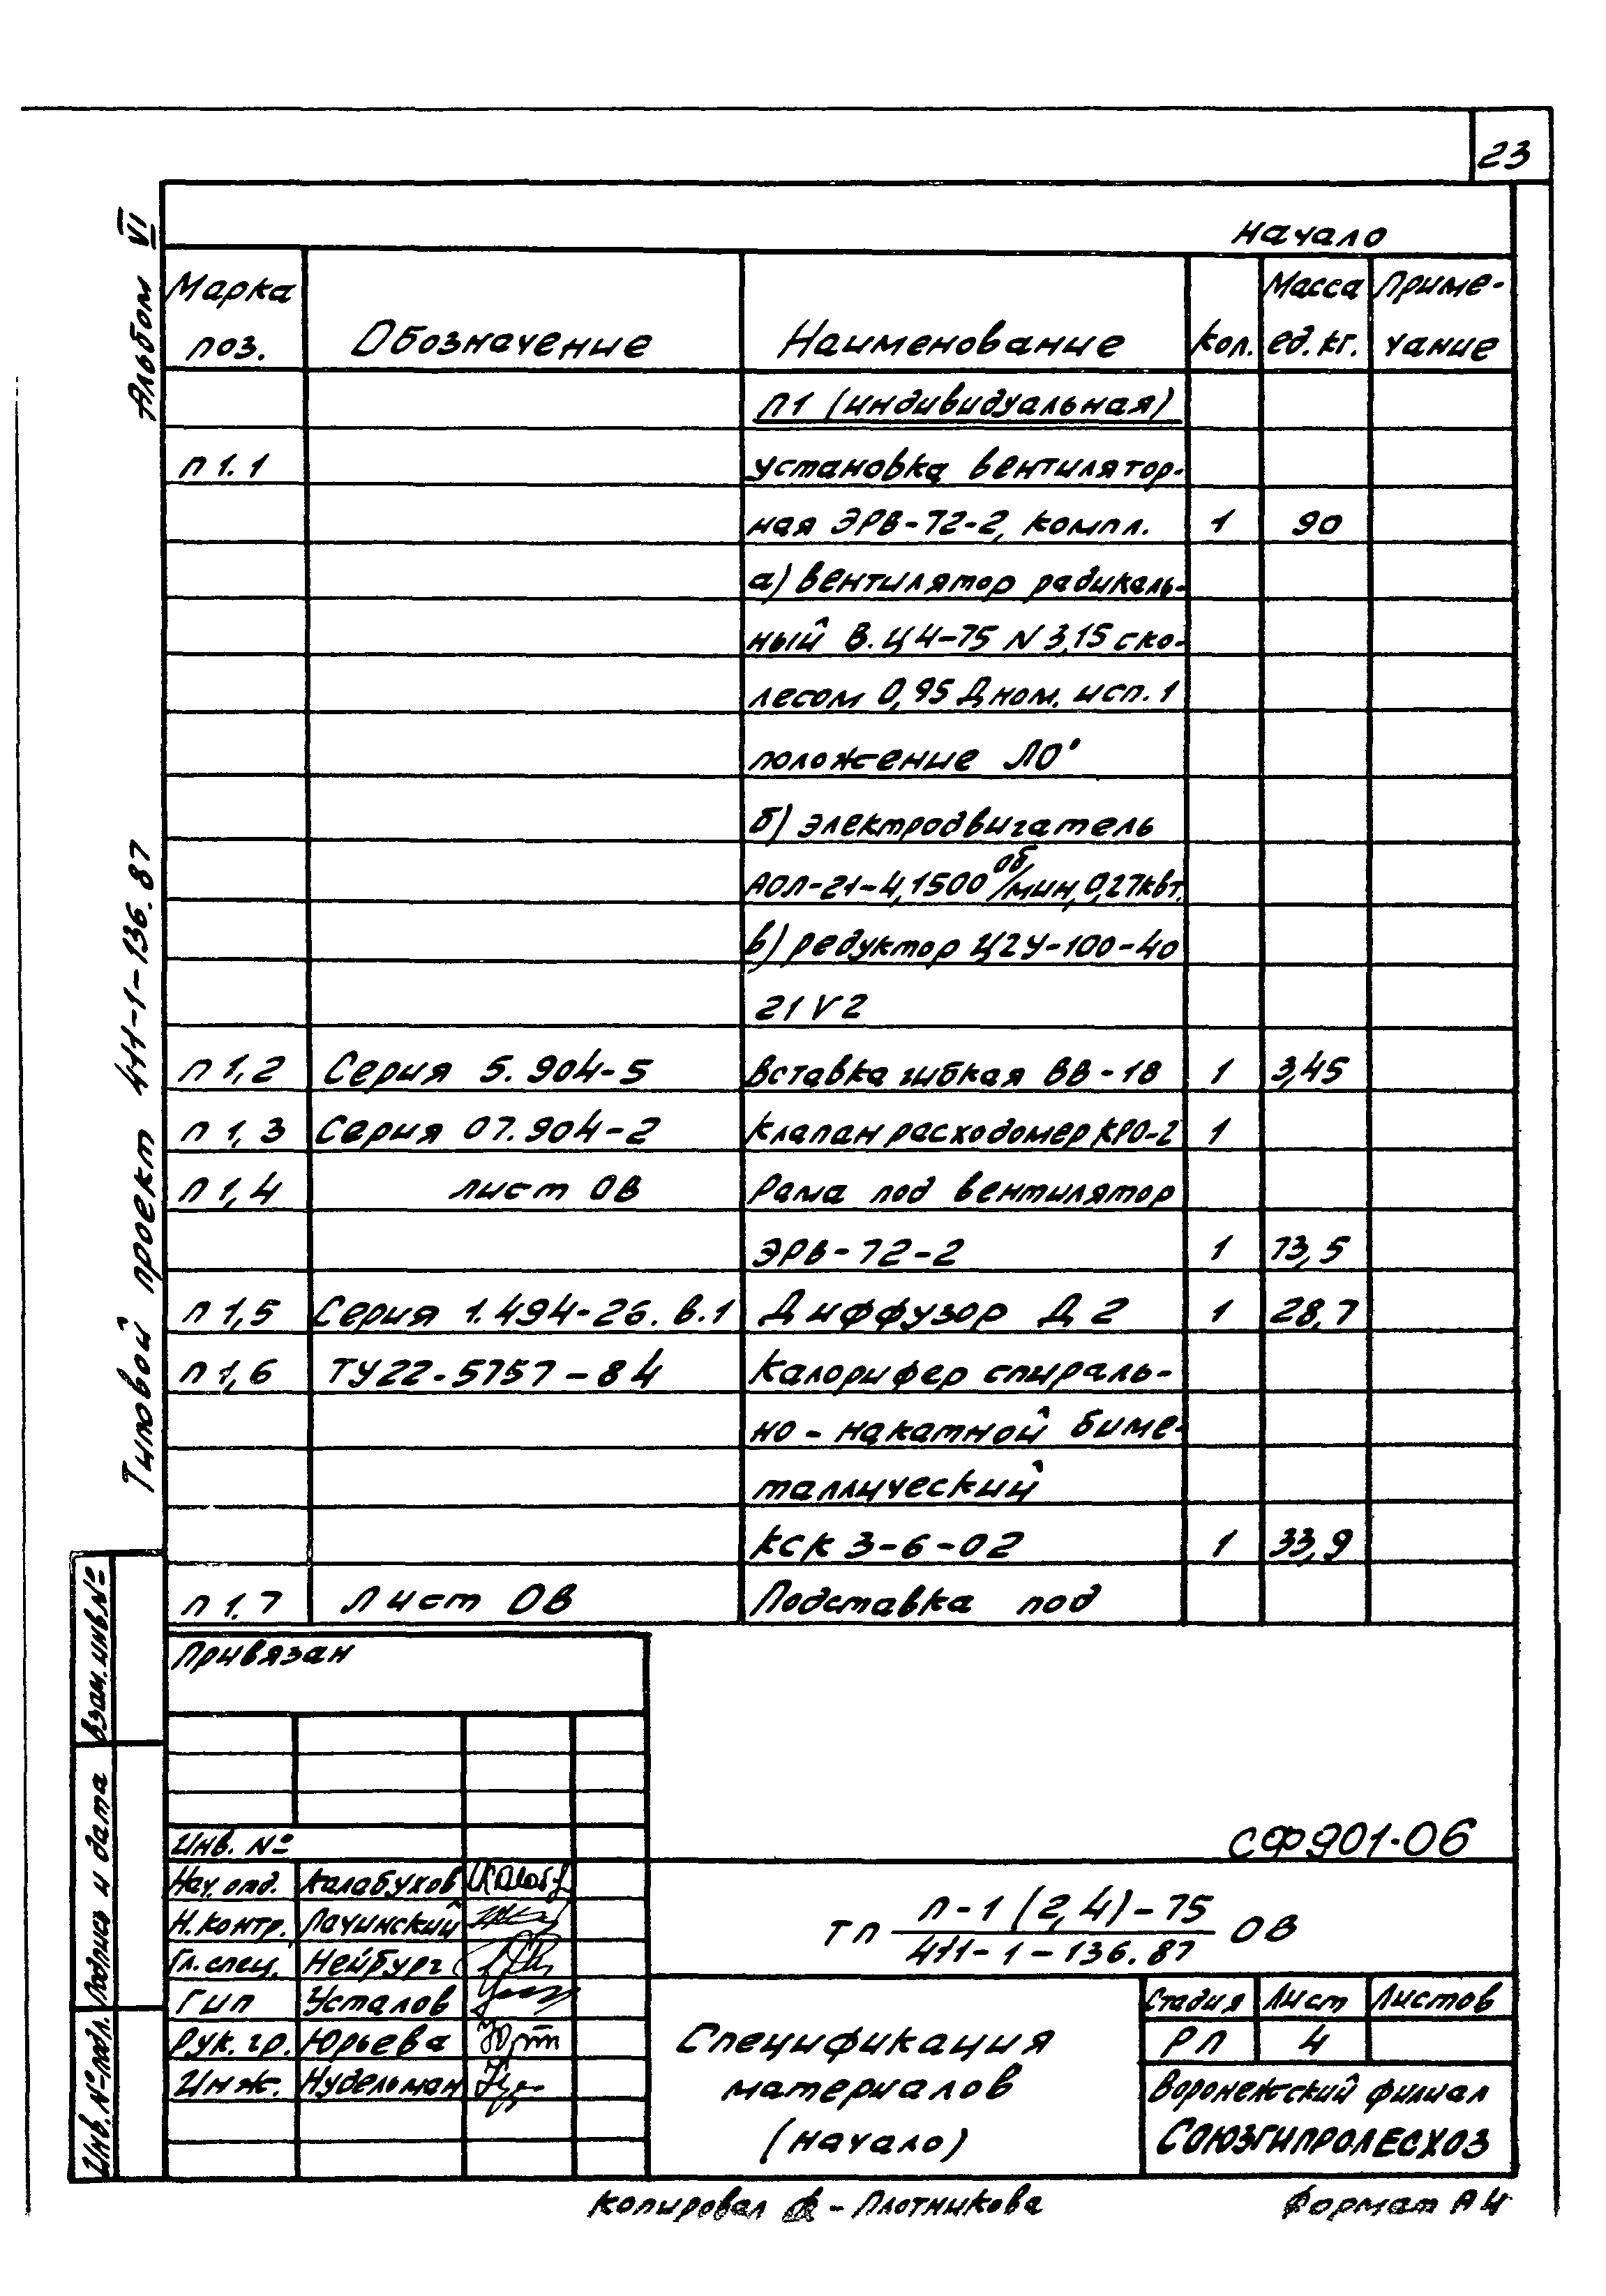 23
начало
Марка поз. Обозначение Наименование Кол. Масса ед. кг. Приме-чание
П1 (индивидуальная)
п 1.1 установка вентилятор-
ная ЭРВ-72-2, компл. 1 90
а) вентилятор радикаль-
ный В.Ц4-75 N 3,15 с ко-
лесом 0,95 Д ном. исп. 1
положение Л0°
б) электродвигатель
АОЛ-21-4, 1500 об/мин, 0,27 квт.
в) редуктор Ц2У-100-40
21V2
п 1,2 Серия 5.904-5 Вставка гибкая ВВ-18 1 3,45
п 1,3 Серия 07.904-2 Клапан расходомер КРО-2 1
п 1,4 лист ОВ Рама под вентилятор
ЭРВ-72-2 1 73,5
п 1,5 Серия 1.494-26. в.1 Диффузор Д 2 1 28,7
п 1,6 ТУ22-5757-84 Калорифер спираль-
но-накатной биме-
таллический
КСК 3-6-02 1 33,9
п 1.7 Лист ОВ Подставка под
Альбом VI
Типовой проект 411-1-136.87
Взам. инв. №
Подпись и дата
Инв. № подл.
Привязан
Инв. №
Нач. отд. Калабухов
Н. контр. Лачинский
Гл. спец. Нейбург
ГИП Усталов
Рук. гр. Юрьева
Инж. Нудельман
СФ901-06
ТП П-1 (2,4)-75 / 411-1-136.87 ОВ
Спецификация
материалов
(начало)
Стадия Лист Листов
РП 4
Воронежский филиал
СОЮЗГИПРОЛЕСХОЗ
Копировал - Плотникова Формат А4